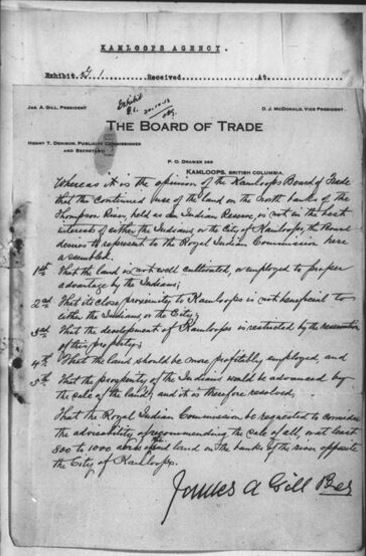 KAMLOOPS AGENCY.
Exhibit G 1 Received At
Exhibit
G 1.
JAS. A. GILL, PRESIDENT
D. J. McDONALD, VICE PRESIDENT
THE BOARD OF TRADE
HENRY T. DENISON, PUBLICITY COMMISSIONER
AND SECRETARY
P. O. DRAWER
KAMLOOPS, BRITISH COLUMBIA
Whereas it is the opinion of the Kamloops Board of Trade
that the continued use of the land on the north banks of the
Thompson River, held as an Indian Reserve, is not in the best
interests of either the Indians, or the City of Kamloops, the Board
desires to represent to the Royal Indian Commission here
assembled.
1st That the land is not well cultivated, or employed to proper
advantage by the Indians;
2nd That its close proximity to Kamloops is not beneficial to
either the Indians or the City;
3rd That the development of Kamloops is restricted by the reservation
of this property;
4th That the land should be more profitably employed, and
5th That the prosperity of the Indians would be advanced by
the sale of the land; and it is therefore resolved,
That the Royal Indian Commission be requested to consider
the advisability of recommending the sale of all, or at least
800 to 1000 acres of the said land on the banks of the river opposite
the City of Kamloops.
James A Gill Pres